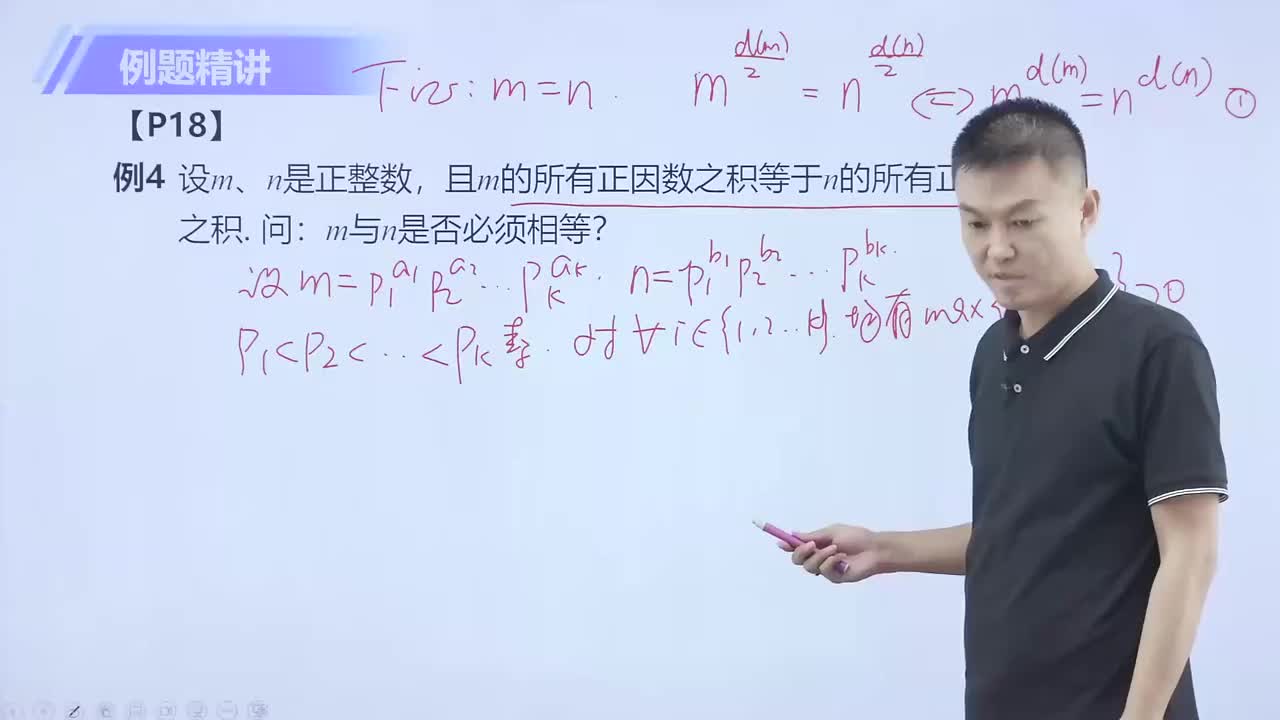 例题精讲
下证: m=n. m^{\frac{d(m)}{2}} = n^{\frac{d(n)}{2}} <=> m^{d(m)} = n^{d(n)} ①
【P18】
例4 设m、n是正整数，且m的所有正因数之积等于n的所有正
之积. 问：m与n是否必须相等?
设 m=p_1^{a_1} p_2^{a_2} ... p_k^{a_k}. n=p_1^{b_1} p_2^{b_2} ... p_k^{b_k}.
p_1<p_2<...<p_k 素. 对∀i∈{1,2...k}. 均有max{ }>0